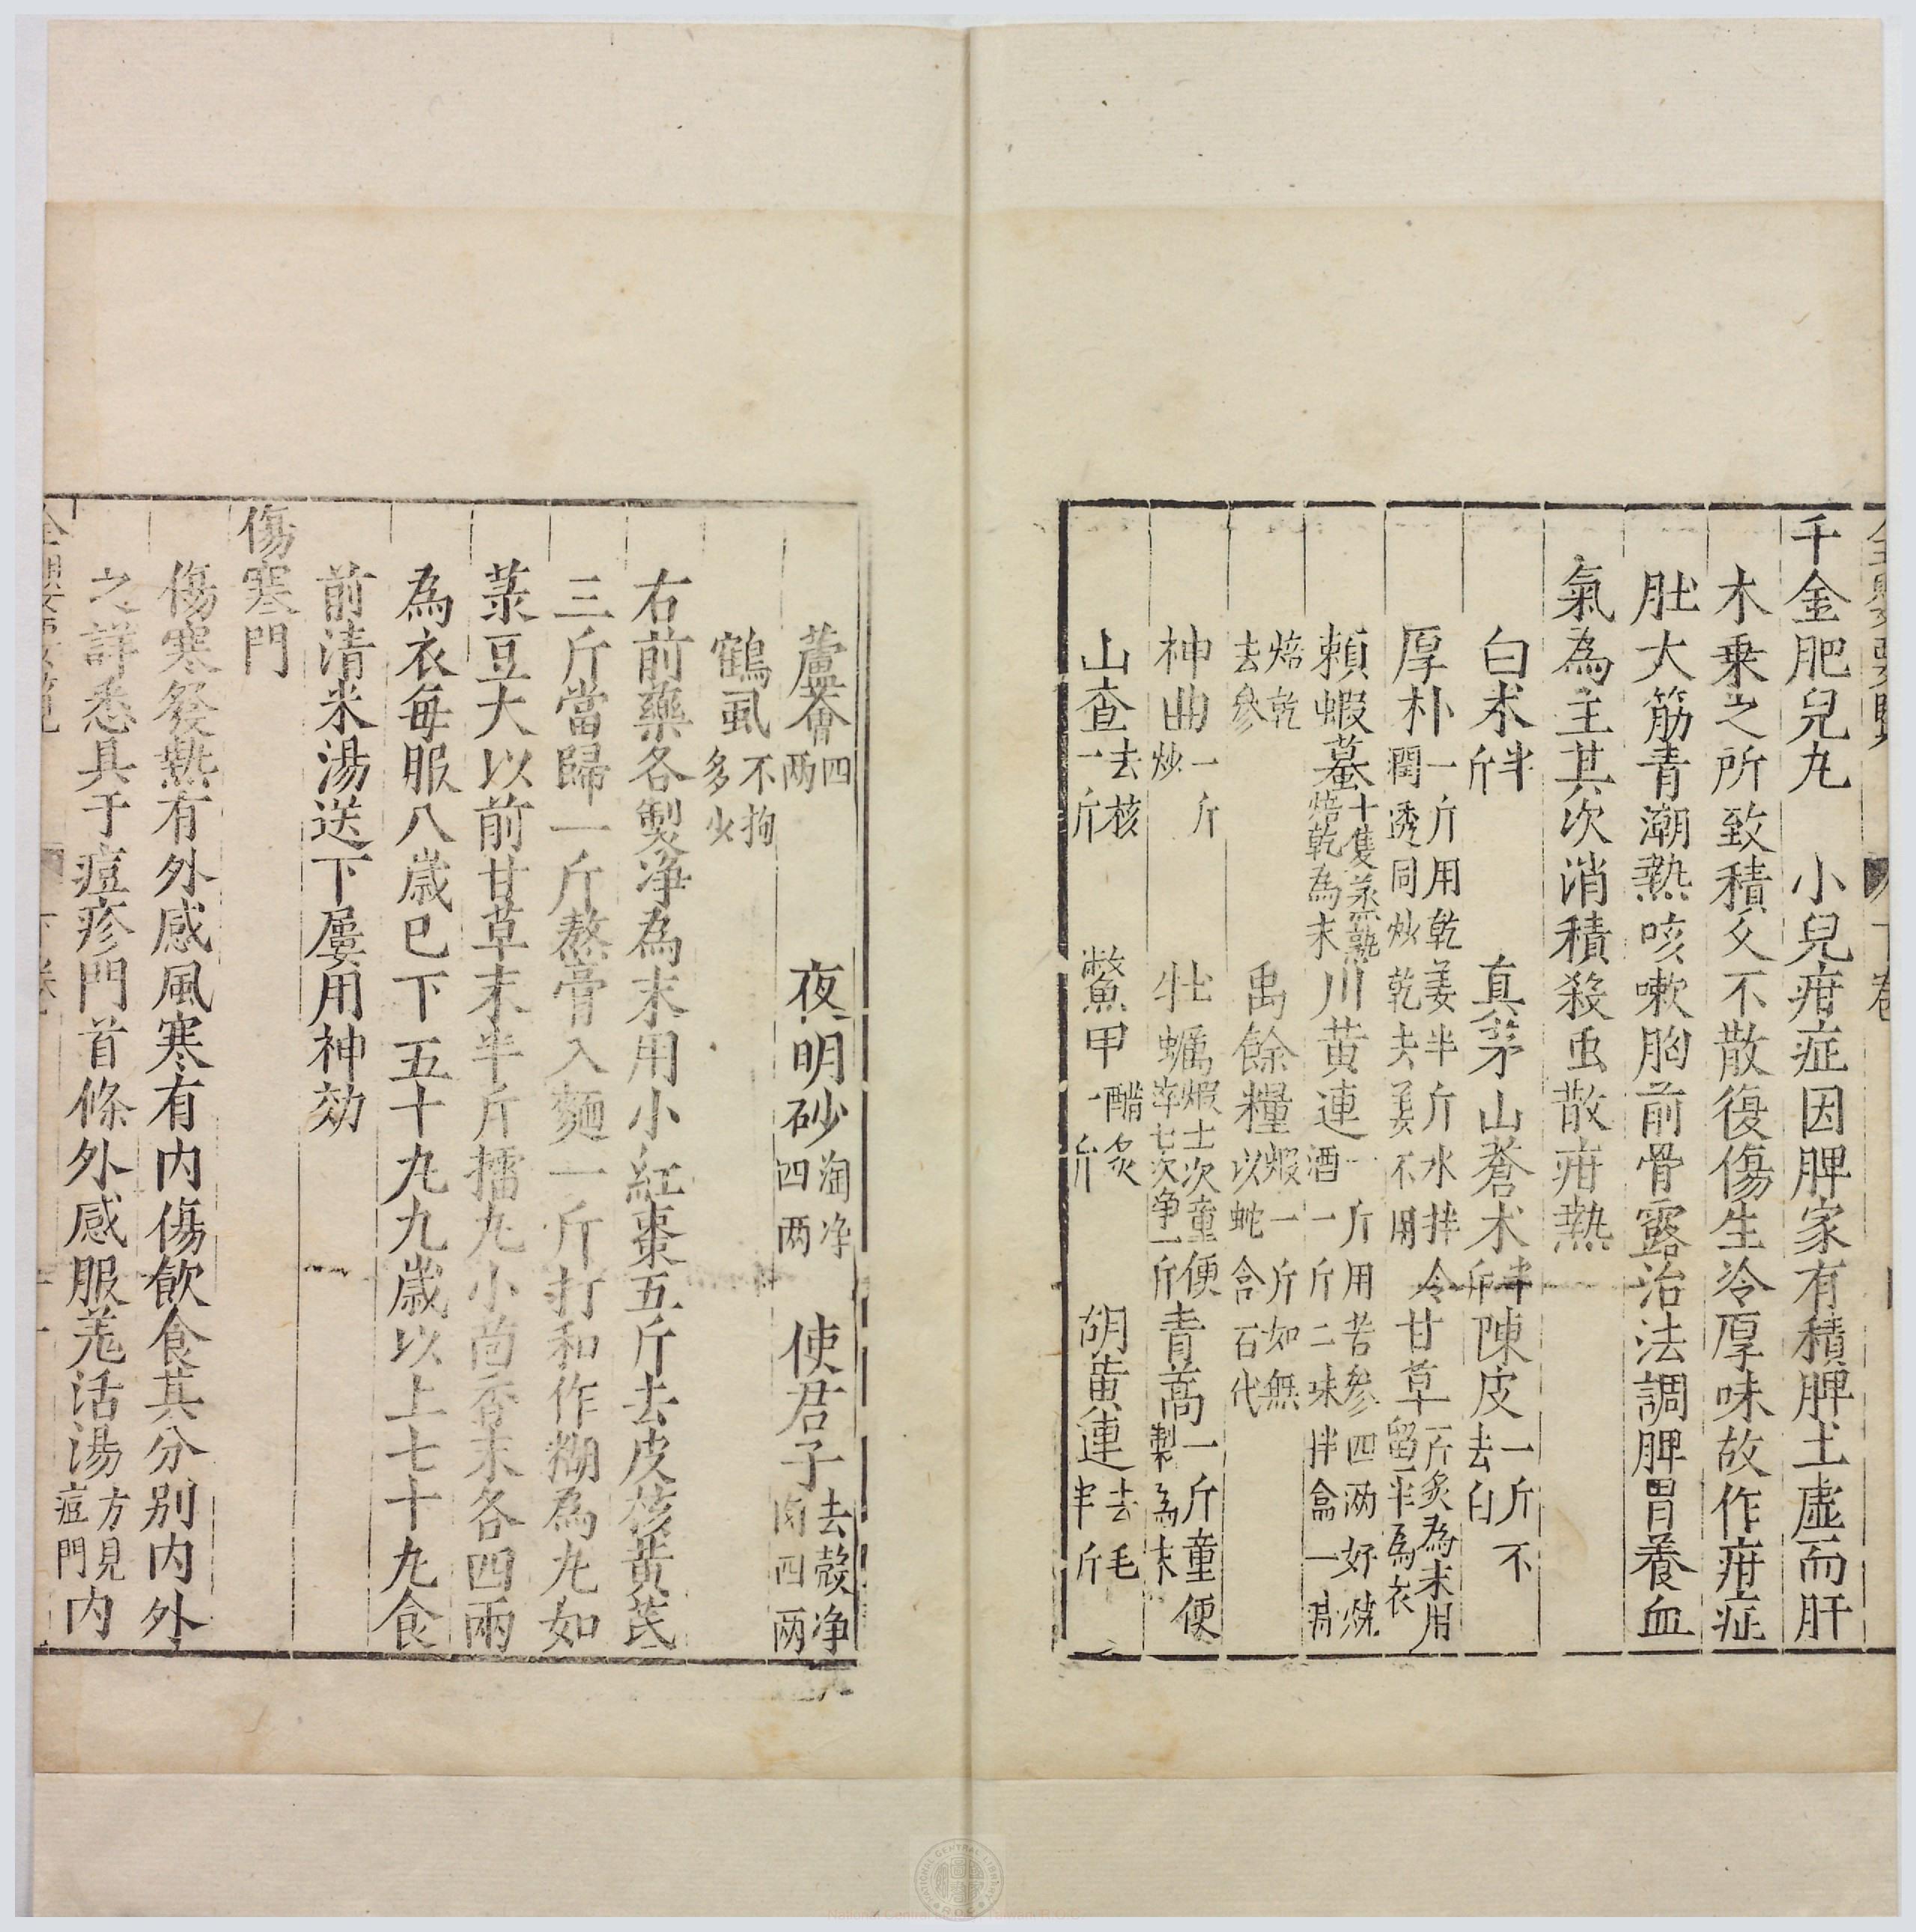 千金肥兒丸　小兒疳症因脾家有積脾土虛而肝
木乗之所致積久不散復傷生冷厚味故作疳症
肚大筋青潮熱咳嗽胸前骨露治法調脾胃養血
氣為主其次消積殺虫散疳熱
白朮半斤　真茅山蒼术半斤　陳皮一斤不去白
厚朴一斤用乾姜半斤水拌令潤透同炒乾去姜不用　甘草一斤炙為末用留一半為衣
頼蝦蟇十隻蒸熟焙乾為末　川黄連一斤用苦參四兩好燒酒一斤二味拌盦一宿
焙乾去參　禹餘糧煅一斤如無以蛇含石代
神曲一斤炒　牡蠣煅七次童便淬七次净一斤　青蒿一斤童便製為末
山查去核一斤　鱉甲醋炙一斤　胡黄連去毛半斤
蘆薈四两　夜明砂淘净四两　使君子去殼净肉四两
鶴虱不拘多少
右前藥各製净為末用小紅棗五斤去皮核黄芪
三斤當歸一斤熬膏入麵一斤打和作糊為丸如
菉豆大以前甘草末半斤擂丸小茴香末各四兩
為衣每服八歳巳下五十九九歳以上七十九食
前清米湯送下屢用神効
傷寒門
傷寒發熱有外感風寒有内傷飲食其分别内外
之詳悉具于痘疹門首條外感服羌活湯方見痘門内